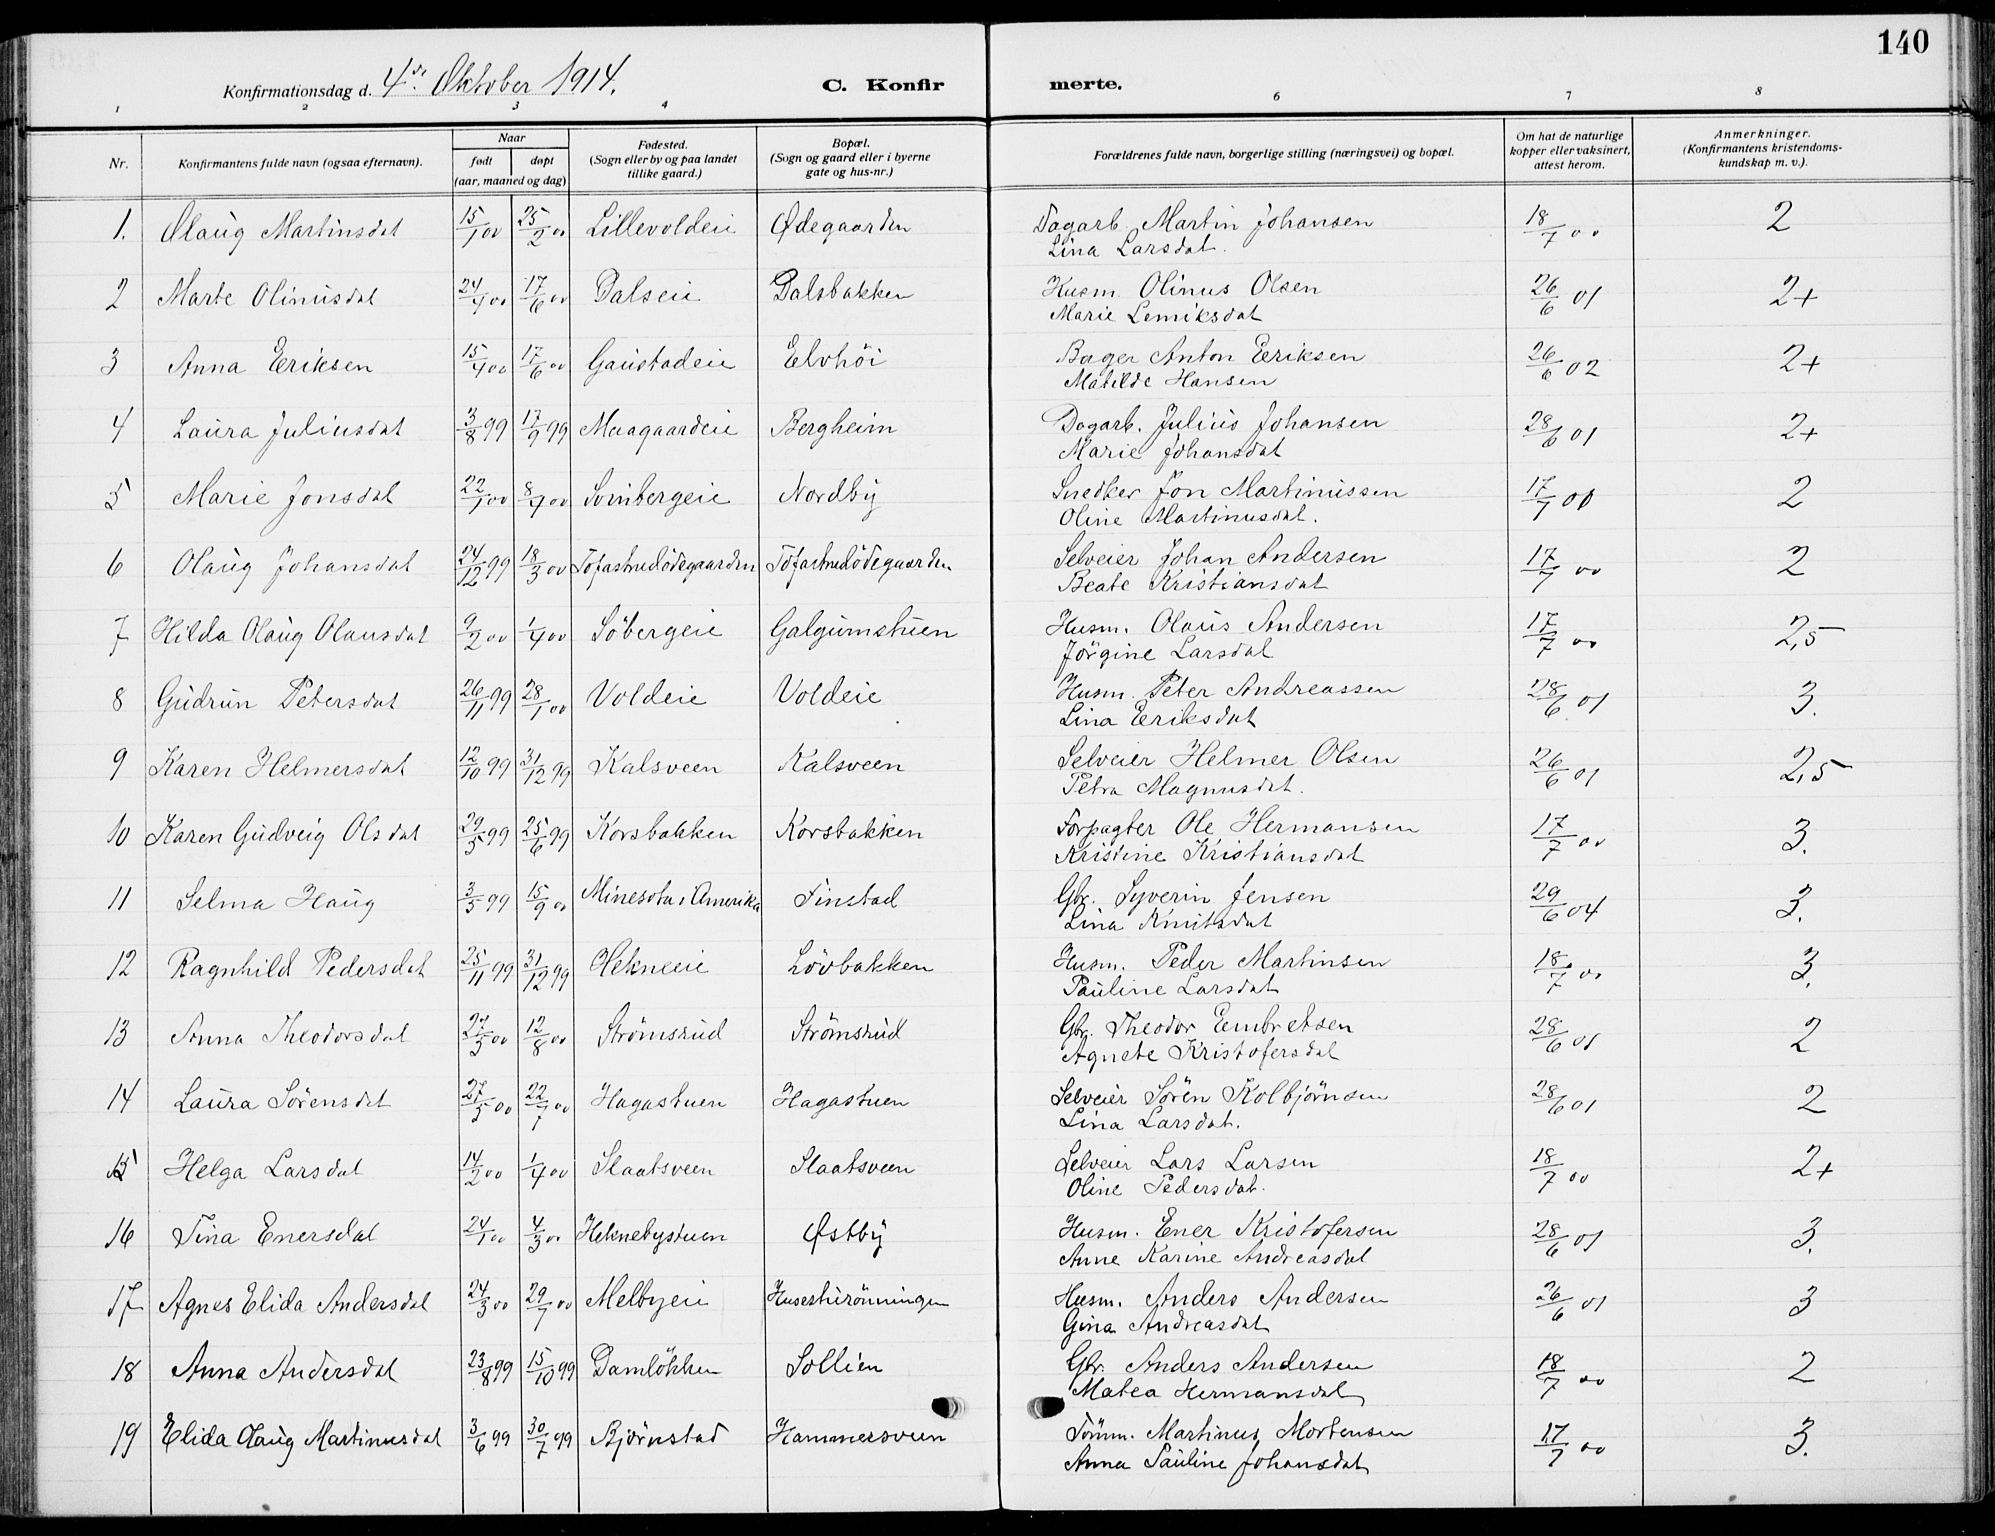 140
Konfirmationsdag d. 4de Oktober 1914. C. Konfirmerte.
1 2 3 4 6 7 8
Nr. Konfirmantens fulde navn (ogsaa efternavn). Naar født døpt (aar, maaned og dag) Fødested. (Sogn eller by og paa landet tillike gaard.) Bopæl. (Sogn og gaard eller i byerne gate og hus-nr.) Forældrenes fulde navn, borgerlige stilling (næringsvei) og bopæl. Om hat de naturlige kopper eller vaksinert, attest herom. Anmerkninger. (Konfirmantens kristendoms-kundskap m. v.).
1. Olaug Martinsdat 15/1 00 25/2 00 Lillevoldeie Ødegaarden Dagarb. Martin Johansen 18/7 00 2
Lina Larsdat.
2 Marte Olinusdat 24/4 00 17/6 00 Dalseie Dalsbakken Husm. Olinus Olsen 26/6 01 2+
Marie Lemiksdat
3 Anna Eriksen 15/4 00 17/6 00 Gaustadeie Elvhöi Bager Anton Eriksen 26/6 02 2+
Matilde Hansen
4 Laura Juliusdat 3/8 99 17/9 99 Maagaardeie Bergheim Dagarb. Julius Johansen 28/6 01 2+
Marie Johansdat
5 Marie Jonsdat 22/1 00 8/4 00 Svinbergeie Nordby Snedker Jon Martinussen 17/7 00 2
Oline Martinusdat.
6 Olaug Johansdat 24/12 99 18/3 00 Tofastrudödegaarden Tofastrudödegaarden Selveier Johan Andersen 17/7 00 2
Beate Kristiansdat
7 Hilda Olaug Olausdat 9/2 00 1/4 00 Söbergeie Galgumstuen Husm. Olaus Andersen 17/7 00 2,5
Jörgine Larsdat
8 Gudrun Petersdat 26/11 99 28/1 00 Voldeie Voldeie Husm. Peter Andreassen 28/6 01 3.
Lina Eriksdat
9 Karen Helmersdat 12/10 99 31/12 99 Kalsveen Kalsveen Selveier Helmer Olsen 26/6 01 2,5
Petra Magnusdat.
10 Karen Gudveig Olsdat 29/3 99 25/6 99 Korsbakken Korsbakken Forpagter Ole Hermansen 17/7 00 3.
Kristine Kristiansdat
11 Selma Haug 3/5 99 15/9 00 Minesota i Amerika Finstad Gbr. Syverin Jensen 29/6 04 3.
Lina Knutsdat
12 Ragnhild Pedersdat 25/11 99 31/12 99 Hekneeie Lövbakken Husm. Peder Martinsen 18/7 00 3.
Pauline Larsdat
13 Anna Theodorsdat 27/5 00 12/8 00 Strömsrud Strömsrud Gbr. Theodor Embretsen 28/6 01 2
Agnete Kristofersdat
14 Laura Sörensdat 27/5 00 22/7 00 Hagastuen Hagastuen Selveier Sören Kolbjörnsen 28/6 01 2
Lina Larsdat.
15 Helga Larsdat 14/2 00 1/4 00 Slaatsveen Slaatsveen Selveier Lars Larsen 18/7 00 2+
Oline Pedersdat.
16 Tina Enersdat 24/1 00 4/3 00 Heknebystuen Østby Husm. Ener Kristofersen 28/6 01 3.
Anne Karine Andreasdat
17 Agnes Elida Andersdat 24/3 00 29/7 00 Melbyeie Husm. Anders Andersen 26/6 01 3
Gina Andreasdat
18 Anna Andersdat 23/8 99 15/10 99 Damlökken Sollien Gbr. Anders Andersen 18/7 00 2
Matea Hermansdat
19 Elida Olaug Martinusdat 3/6 99 30/7 99 Bjørnstad Hammersveen Tömm. Martinus Mortensen 17/7 00 3.
Anna Pauline Johansdat